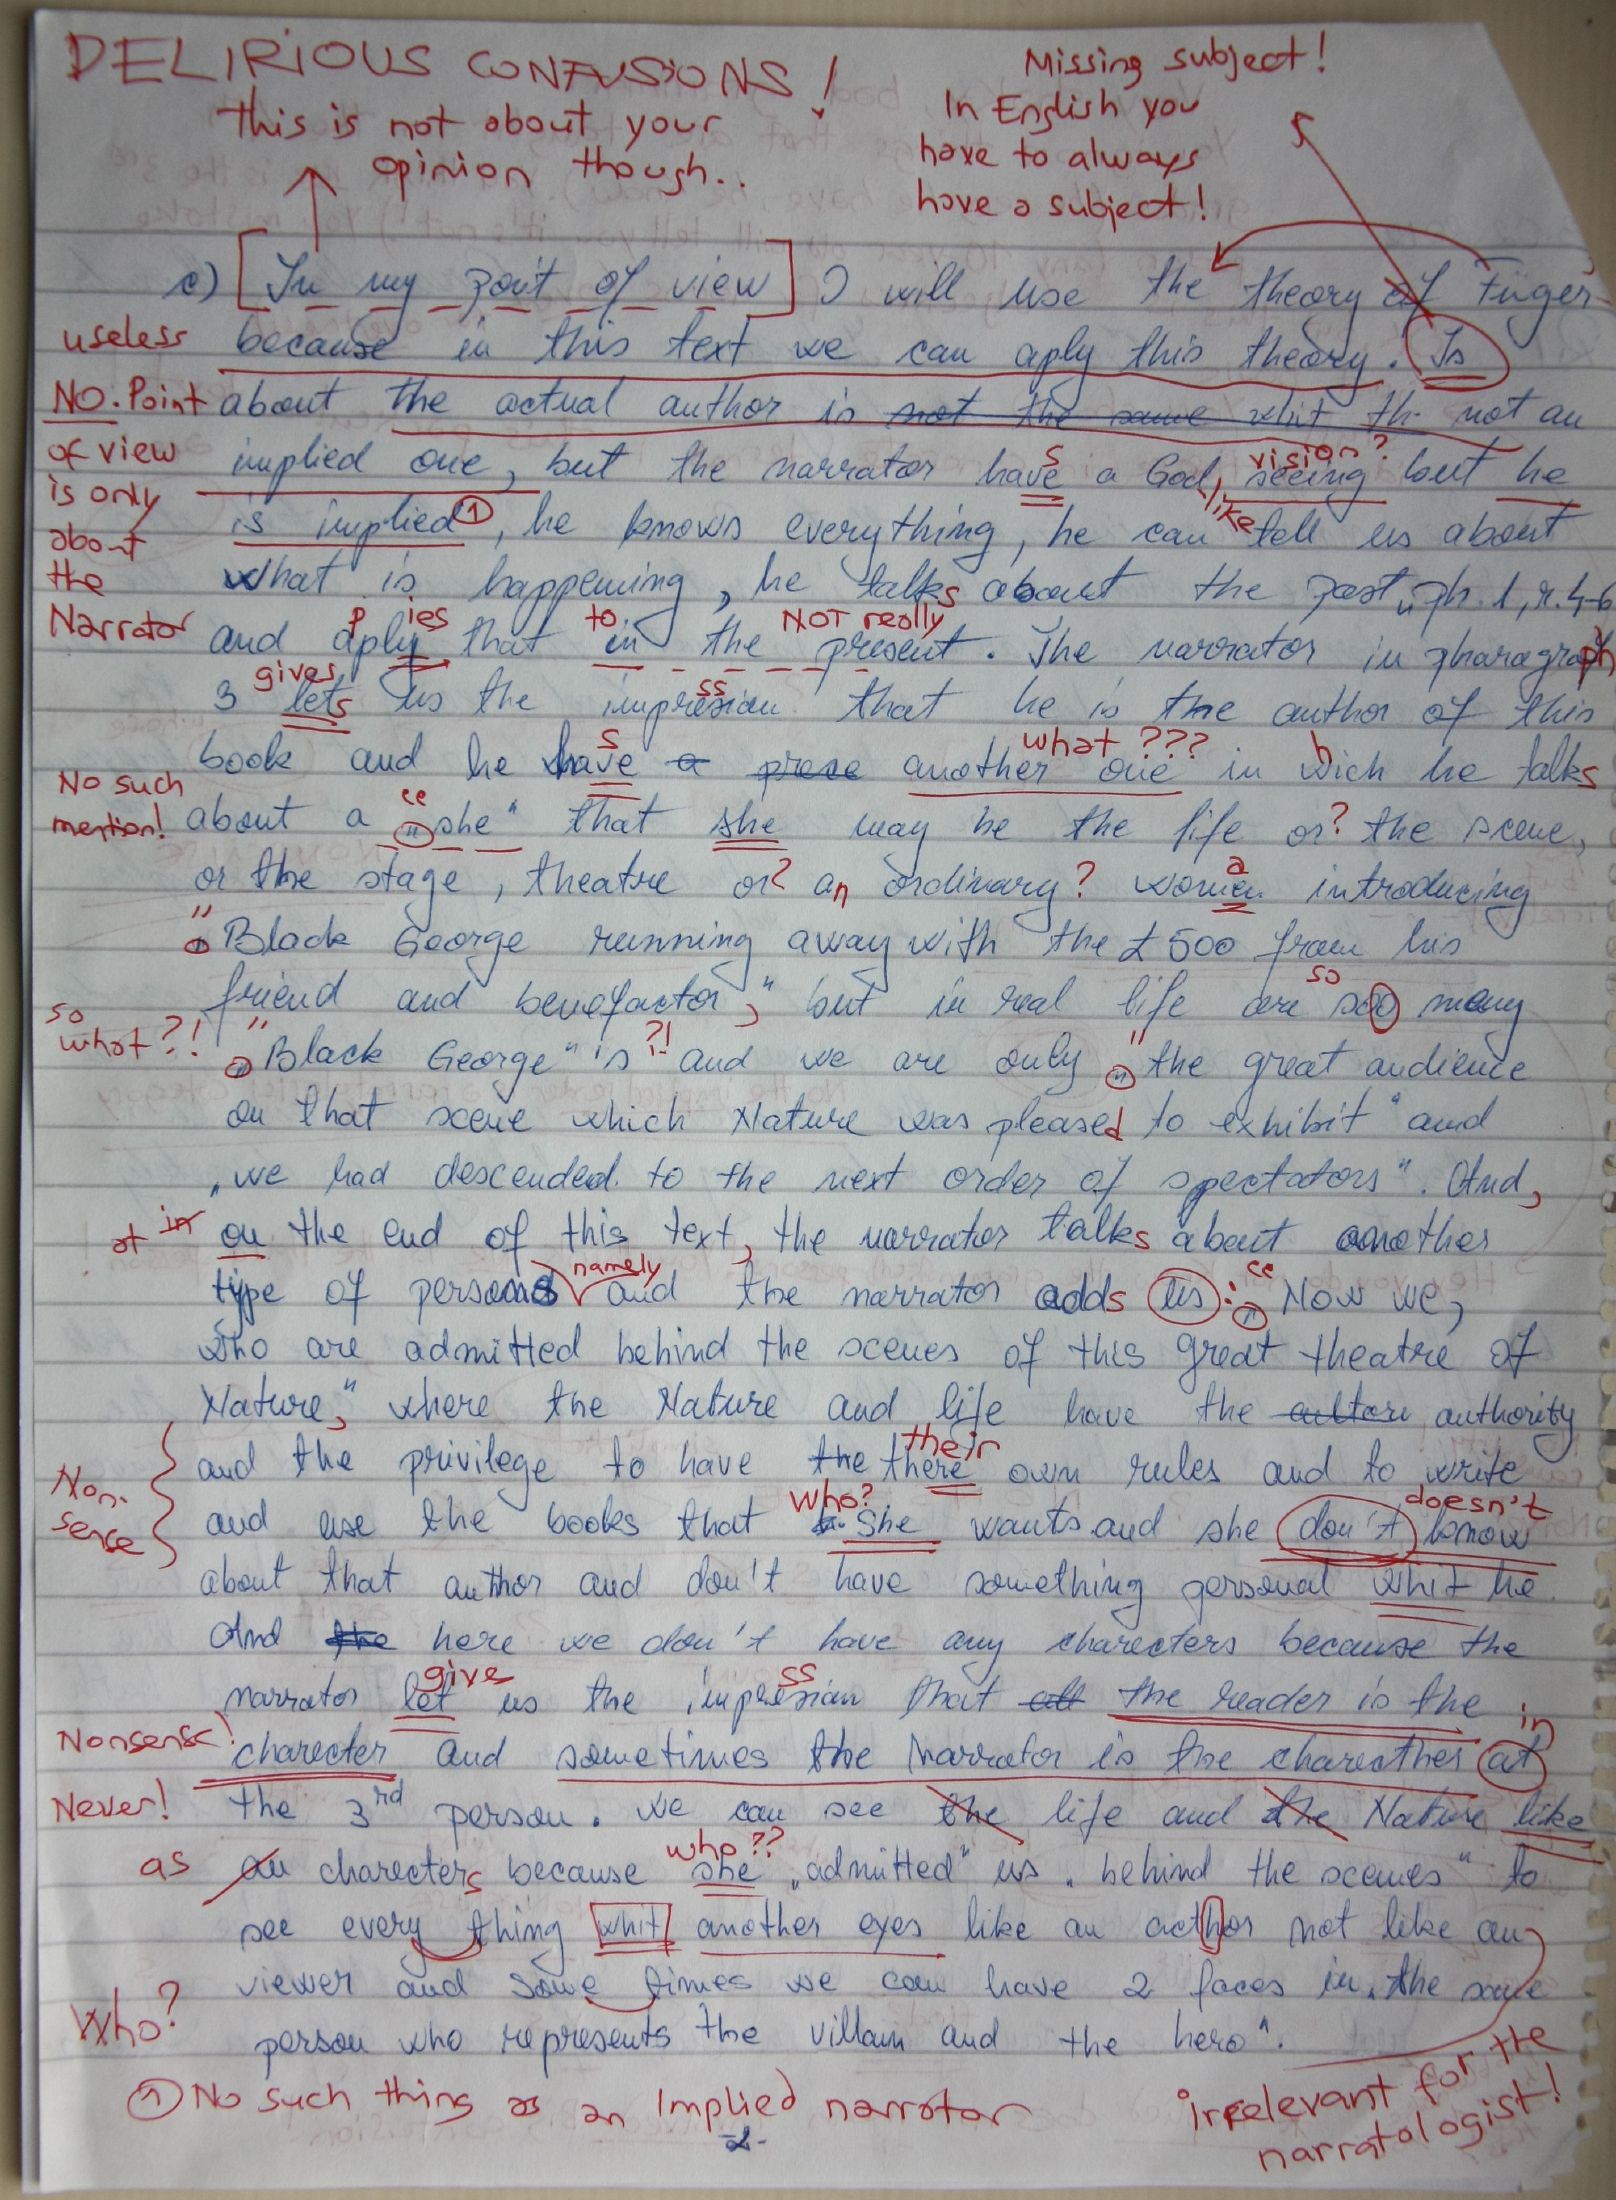 DELIRIOUS CONFUSIONS!
this is not about your
opinion though..
Missing subject!
In English you
have to always
have a subject!
c) [In my poit of view] I will use the theory of Füger
useless because in this text we can aply this theory. Is
NO. Point about the actual author is not the same whit th not an
of view implied one, but the narrator haves a God, like seeing vision? but he
is only is implied ①, he knows everything, he can tell us about
about what is happening, he talks about the past „ph. 1, r. 4-6
the
Narrator and applyies that to in the NOT really present. The narrator in pharagraph
3 gives lets us the impression ss that he is the author of this
book and he have s a another one what ??? in wich h he talks
No such
mention! about a „she“ that she may be the life or? the scene,
or the stage, theatre or? an ordinary? women a introducing
" Black George running away with the £500 from his
friend and benefactor," but in real life are soo so many
so
what?!! "„Black George" is ?! and we are only „the great audience
on that scene which Nature was pleased to exhibit" and
„we had descended to the next order of spectators". And,
at in on the end of this text, the narrator talks about another
type of persons namely and the narrator adds us: „Now we,
who are admitted behind the scenes of this great theatre of
Nature," where the Nature and life have the authority
Non-
sence
and the privilege to have the there their own rules and to write
and use the books that who? she wants and she don't doesn't know
about that author and don't have something personal whit he.
And the here we don't have any charecters because the
narrator let give us the impresian ss that all the reader is the
Nonsense! charecter and sometimes the narrator is the charecther at in
Never! the 3rd person. We can see the life and the Nature like
as an charecters because she who ?? „admitted" us „behind the scenes" to
see every thing whit another eyes like an acthor not like an
viewer and some times we can have 2 faces in „the same
Who? person who represents the villain and the hero".
① No such thing as an Implied narrator
irrelevant for the
narratologist!
-2-